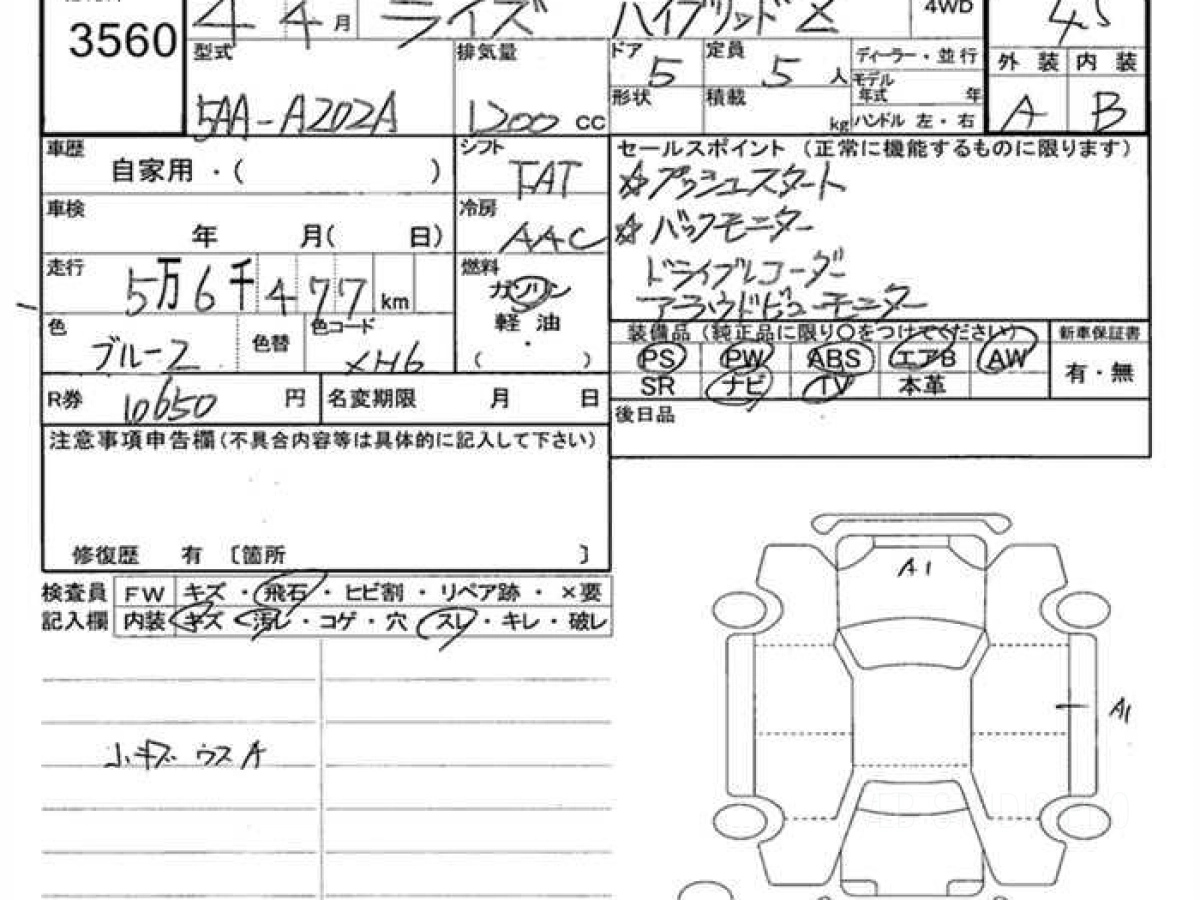 4 4月 ライズ ハイブリッド Z 4WD 4.5
3560
型式 排気量 ドア 5 定員 5 人 ディーラー・並行 外装 内装
モデル年式 年
5AA-A202A 1200 cc 形状 積載 kg ハンドル 左・右 A B
車歴 自家用・( ) シフト FAT セールスポイント (正常に機能するものに限ります)
☆プッシュスタート
車検 年 月( 日) 冷房 AAC ☆バックモニター
走行 5万6千477km 燃料 ガソリン ドライブレコーダー
軽油 アラウンドビューモニター
・
( )
色 ブルー2 色替 色コード XH6 装備品 (純正品に限り○をつけてください) 新車保証書
PS PW ABS エアB AW 有・無
SR ナビ TV 本革
R券 10650 円 名変期限 月 日 後日品
注意事項申告欄(不具合内容等は具体的に記入して下さい)
修復歴 有 〔箇所 〕
検査員 FW キズ・飛石・ヒビ割・リペア跡・×要
記入欄 内装 キズ・汚レ・コゲ・穴・スレ・キレ・破レ
A1
A1
小キズ ウスA